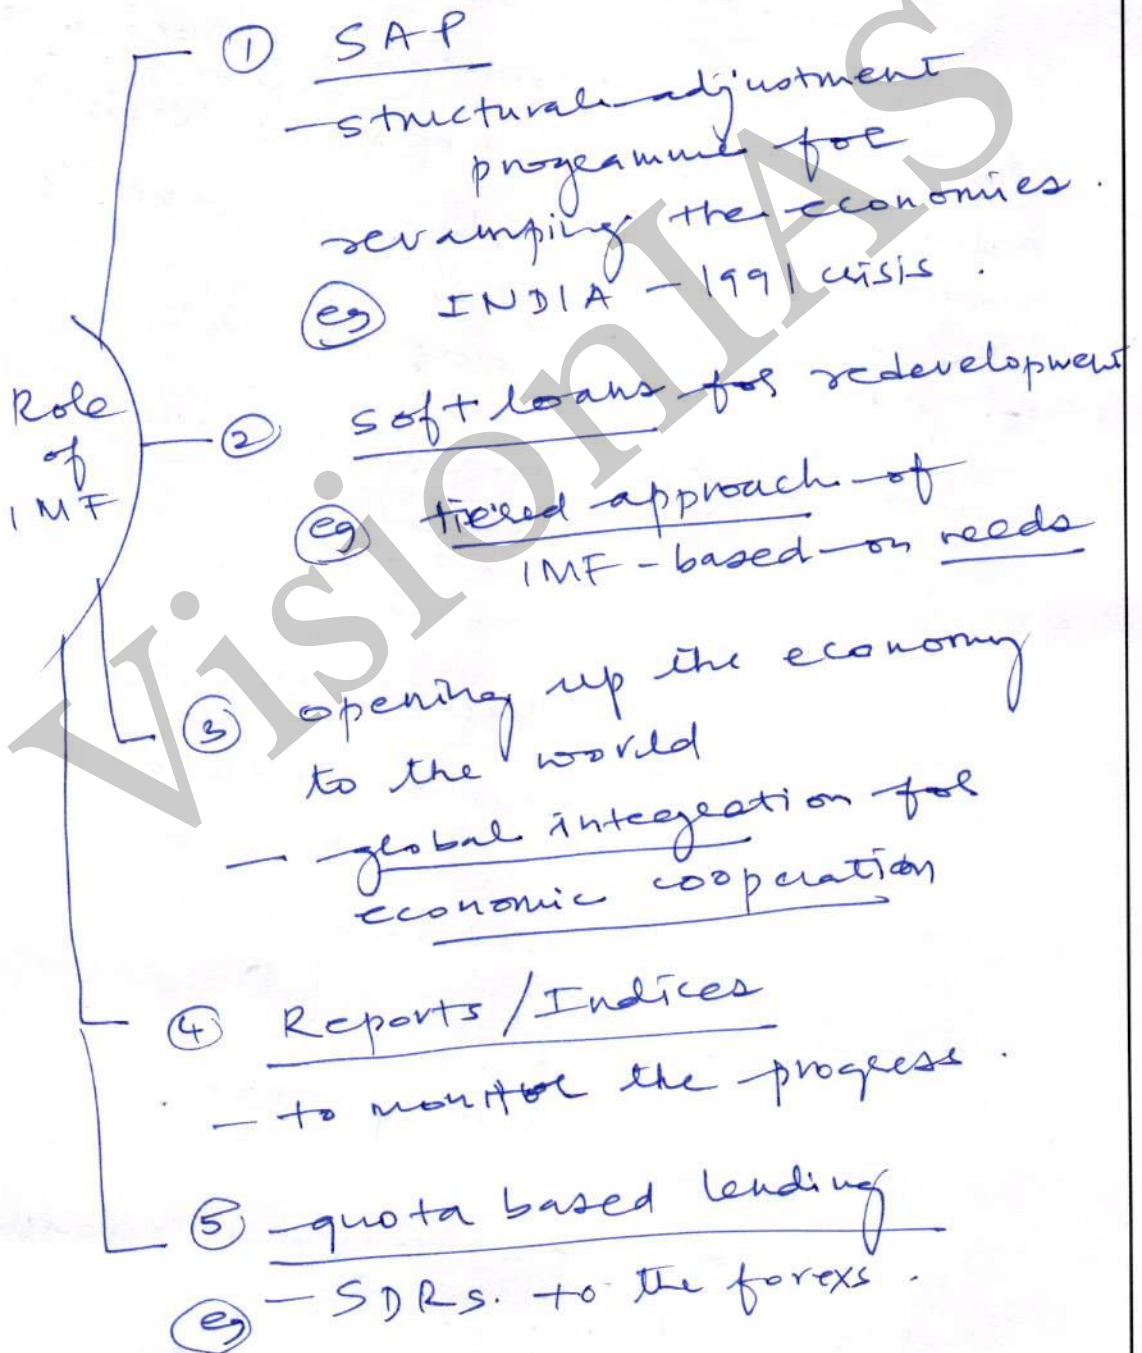 Role
of
IMF
① SAP
- structural adjustment
programme for
revamping the economies.
eg INDIA - 1991 crisis.
② soft loans for redevelopment
eg tiered approach of
IMF - based on needs
③ opening up the economy
to the world
- global integration for
economic cooperation
④ Reports/Indices
- to monitor the progress.
⑤ quota based lending
eg - SDRs. to the forexs.
VisionIAS